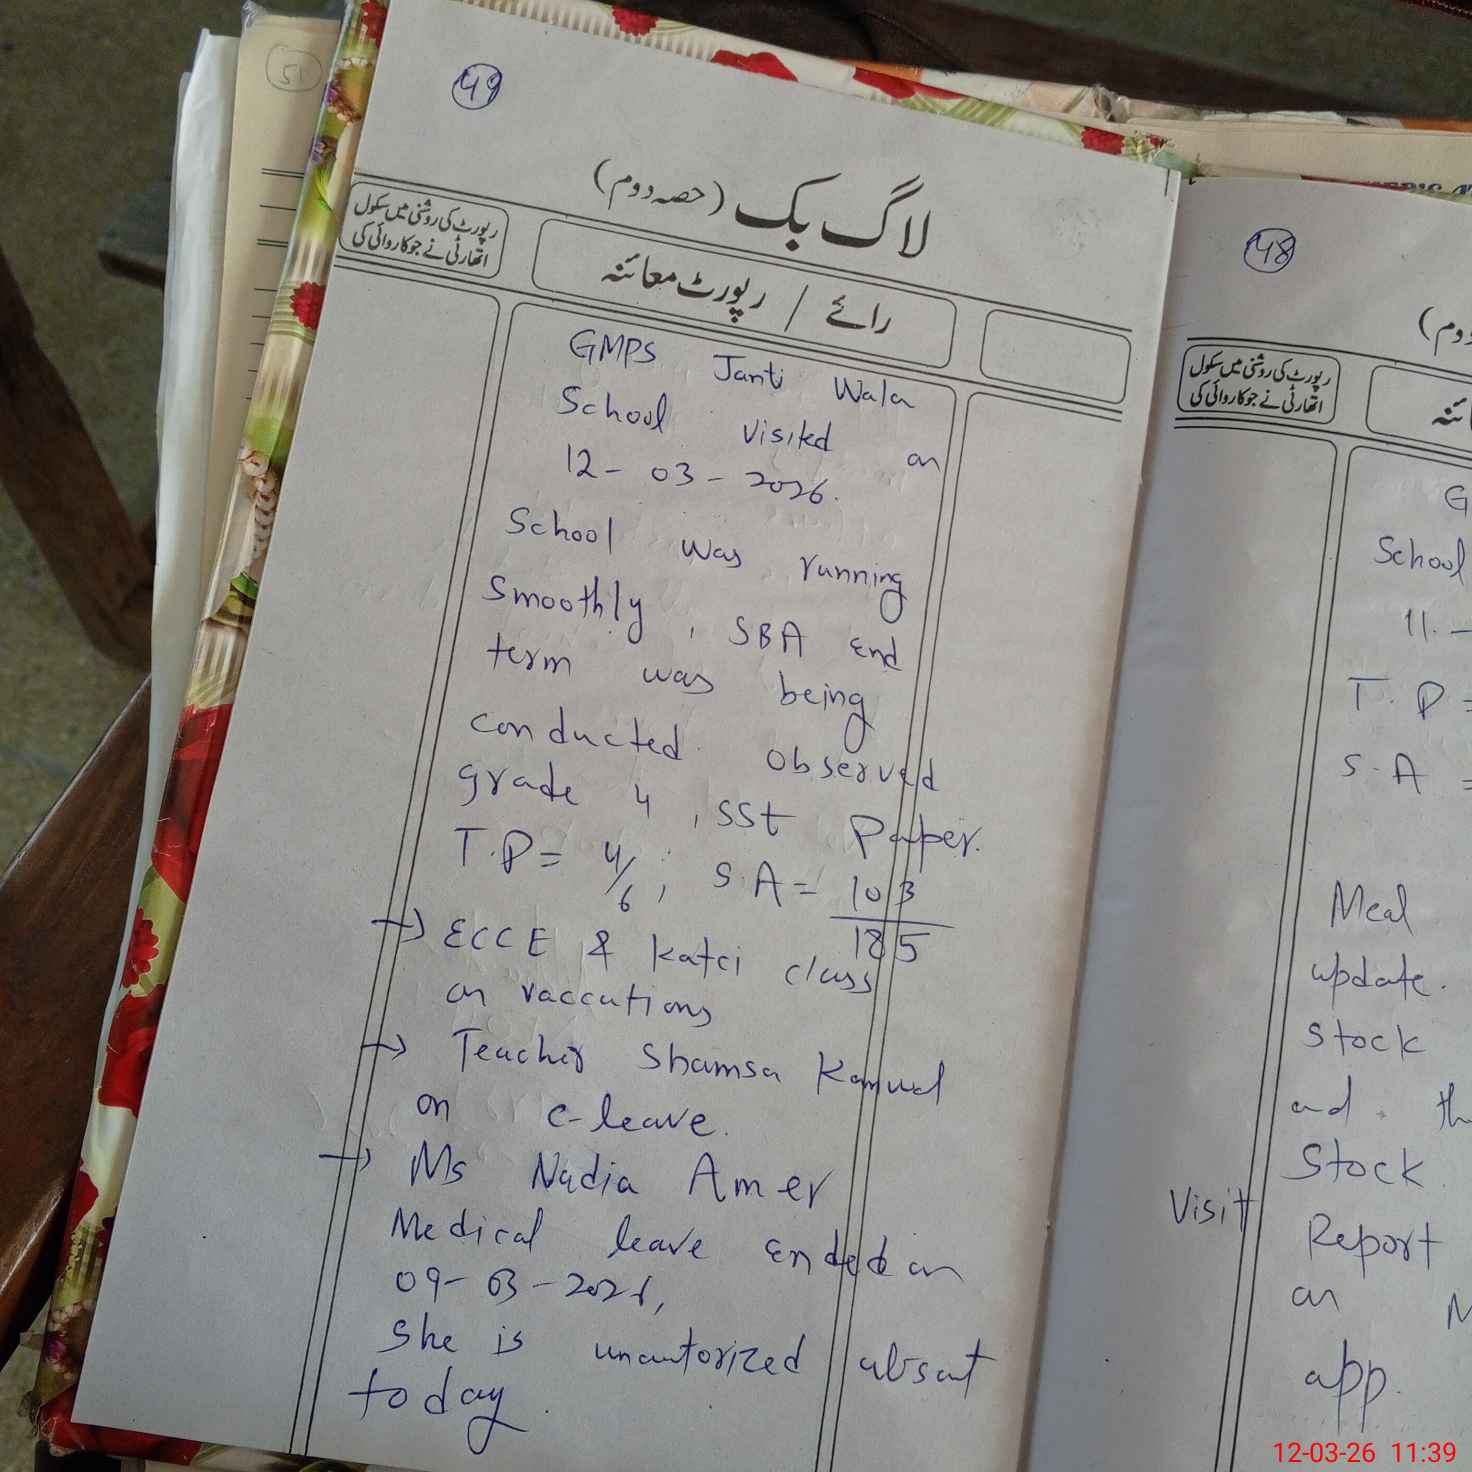 51
49
لاگ بک (حصہ دوم)
رائے / رپورٹ معائنہ
رپورٹ کی روشنی میں سکول
اتھارٹی نے جو کاروائی کی
GMPS Janti Wala
School visited on
12-03-2026.
School was running
Smoothly, SBA End
term was being
conducted. observed
grade 4, SSt Paper.
T.P = 4/6, S.A = 103/185
→ ECCE & Katci class
on vaccations
→ Teacher Shamsa Kanwal
on C-leave.
→ Ms Nadia Amer
Medical leave Ended on
09-03-2026,
She is unautorized absent
today.
48
دوم)
رپورٹ کی روشنی میں سکول
اتھارٹی نے جو کاروائی کی
G
School
11. -
T. P =
S. A =
Meal
update.
Stock
and th
Stock.
Visit Report
on M
app.
12-03-26 11:39